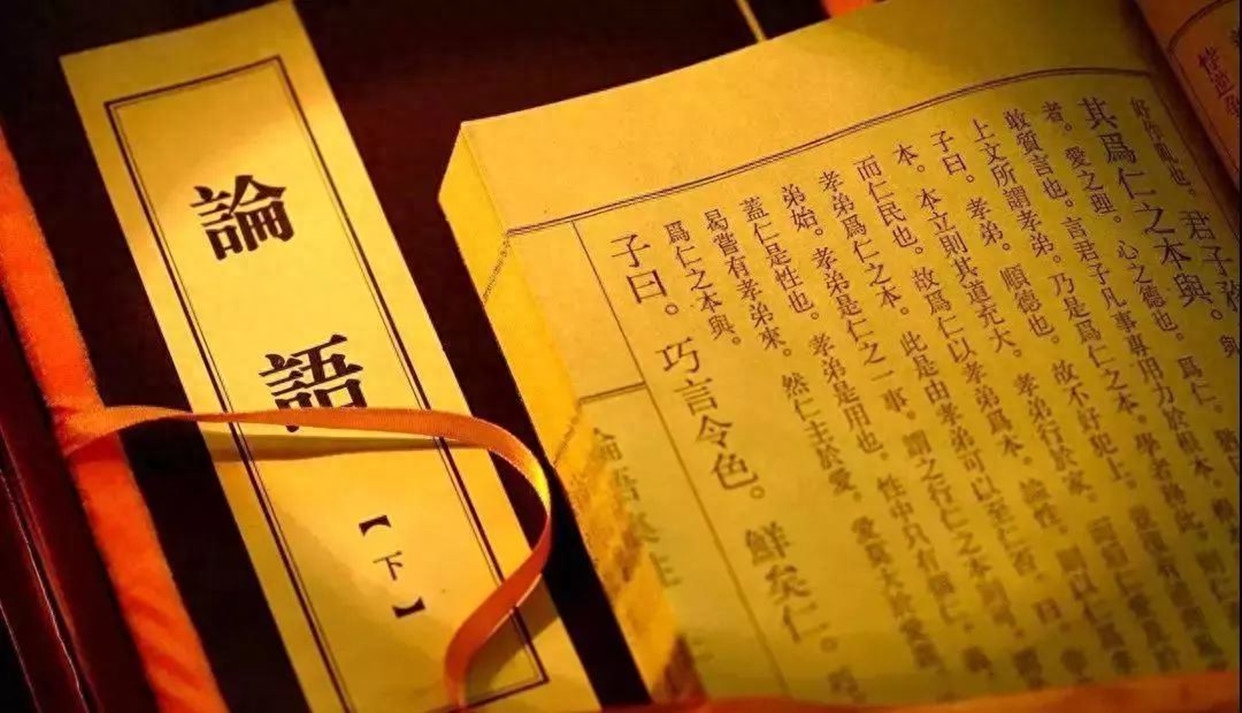 好作亂也。君子務
其爲仁之本與。與
者。愛之理。心之德也。爲仁。
敢質言也。言君子凡事專用力於根本。
上文所謂孝弟。乃是爲仁之本。學者務此。
子曰。孝弟。順德也。故不好犯上。
本。本立則其道充大。孝弟行於家。而後仁愛
而仁民也。故爲仁以孝弟爲本。論性。則以仁爲
孝弟爲仁之本。此是由孝弟可以至仁否。曰
弟始。孝弟是仁之一事。謂之行仁之本則可。
蓋仁是性也。孝弟是用也。性中只有箇仁。義
曷嘗有孝弟來。然仁主於愛。愛莫大於愛親
爲仁之本與。
子曰。巧言令色。鮮矣仁。
論語集註
論語
【下】